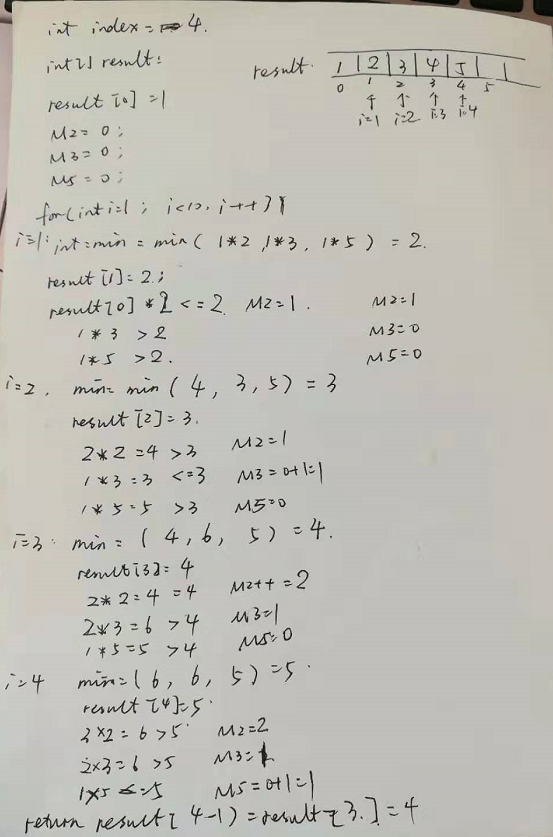 int index = 4.
int[] result;
result. 1 | 2 | 3 | 4 | 5 |
0 1 2 3 4 5
↑ ↑ ↑ ↑
i=1 i=2 i=3 i=4
result [0] = 1
M2 = 0;
M3 = 0;
M5 = 0;
for(int i=1 ; i<10, i++){
i=1: int min = min( 1*2, 1*3, 1*5 ) = 2.
result [1] = 2;
result[0] * 2 <= 2 M2=1. M2=1
1 * 3 > 2 M3=0
1*5 > 2. M5=0
i=2. min= min ( 4, 3, 5) = 3
result [2] = 3.
2*2 = 4 > 3 M2=1
1*3 = 3 <=3 M3=0+1=1
1*5=5 >3 M5=0
i=3: min = ( 4, 6, 5 ) = 4.
result[3]= 4
2*2=4 =4 M2++ = 2
2*3=6 >4 M3=1
1*5=5 >4 M5=0
i=4 min=(6, 6, 5) =5.
result [4]=5
3×2=6>5 M2=2
2×3=6>5 M3=1
1×5 <=5 M5=0+1=1
return result[ 4-1) = result[3.] = 4